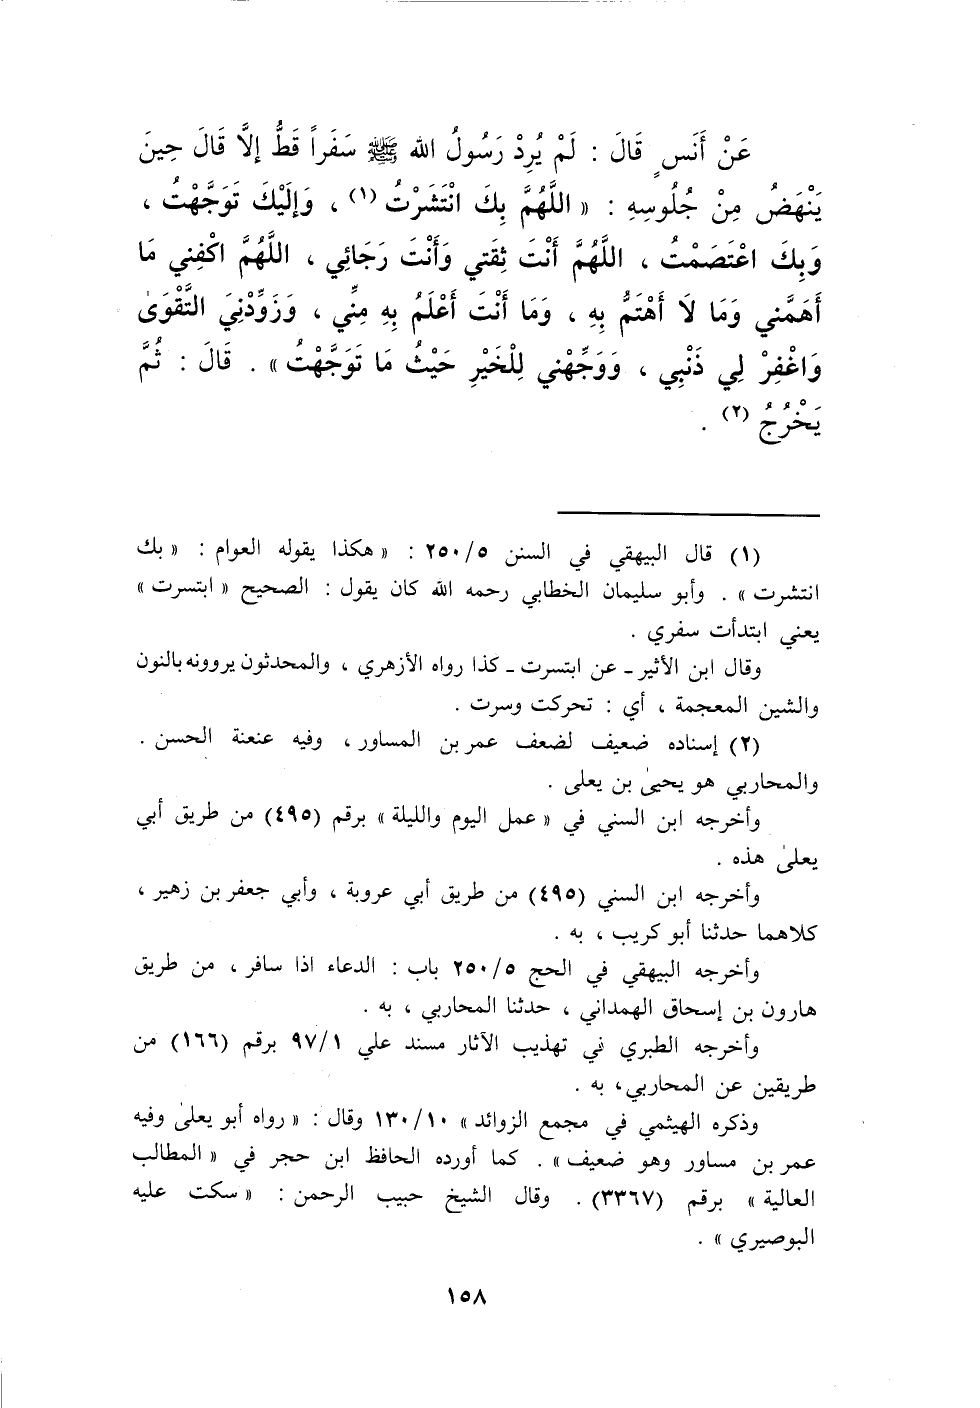 عَنْ أَنَسٍ قَالَ : لَمْ يُرِدْ رَسُولُ الله ﷺ سَفَراً قَطُّ إلَّا قَالَ حِينَ
يَنْهَضُ مِنْ جُلُوسِهِ : « اللَّهُمَّ بِكَ انْتَشَرْتُ (١) ، وَإلَيْكَ تَوَجَّهْتُ ،
وَبِكَ اعْتَصَمْتُ ، اللَّهُمَّ أَنْتَ ثِقَتي وَأَنْتَ رَجَائِي ، اللَّهُمَّ اكْفِني مَا
أَهَمَّني وَمَا لَا أَهْتَمُّ بِهِ ، وَمَا أَنْتَ أَعْلَمُ بِهِ مِنِّي ، وَزَوِّدْنِيَ التَّقْوَىٰ
وَاغْفِرْ لِي ذَنْبِي ، وَوَجِّهْني لِلْخَيْرِ حَيْثُ مَا تَوَجَّهْتُ » . قَالَ : ثُمَّ
يَخْرُجُ (٢) .
(١) قال البيهقي في السنن ٢٥٠/٥ : « هكذا يقوله العوام : « بك
انتشرت » . وأبو سليمان الخطابي رحمه الله كان يقول : الصحيح « ابتسرت »
يعني ابتدأت سفري .
وقال ابن الأثير ـ عن ابتسرت ـ كذا رواه الأزهري ، والمحدثون يروونه بالنون
والشين المعجمة ، أي : تحركت وسرت .
(٢) إسناده ضعيف لضعف عمر بن المساور ، وفيه عنعنة الحسن .
والمحاربي هو يحيىٰ بن يعلى .
وأخرجه ابن السني في « عمل اليوم والليلة » برقم (٤٩٥) من طريق أبي
يعلىٰ هذه .
وأخرجه ابن السني (٤٩٥) من طريق أبي عروبة ، وأبي جعفر بن زهير ،
كلاهما حدثنا أبو كريب ، به .
وأخرجه البيهقي في الحج ٢٥٠/٥ باب : الدعاء اذا سافر ، من طريق
هارون بن إسحاق الهمداني ، حدثنا المحاربي ، به .
وأخرجه الطبري في تهذيب الآثار مسند علي ٩٧/١ برقم (١٦٦) من
طريقين عن المحاربي ، به .
وذكره الهيثمي في مجمع الزوائد » ١٣٠/١٠ وقال : « رواه أبو يعلىٰ وفيه
عمر بن مساور وهو ضعيف » . كما أورده الحافظ ابن حجر في « المطالب
العالية » برقم (٣٣٦٧) . وقال الشيخ حبيب الرحمن : « سكت عليه
البوصيري » .
١٥٨